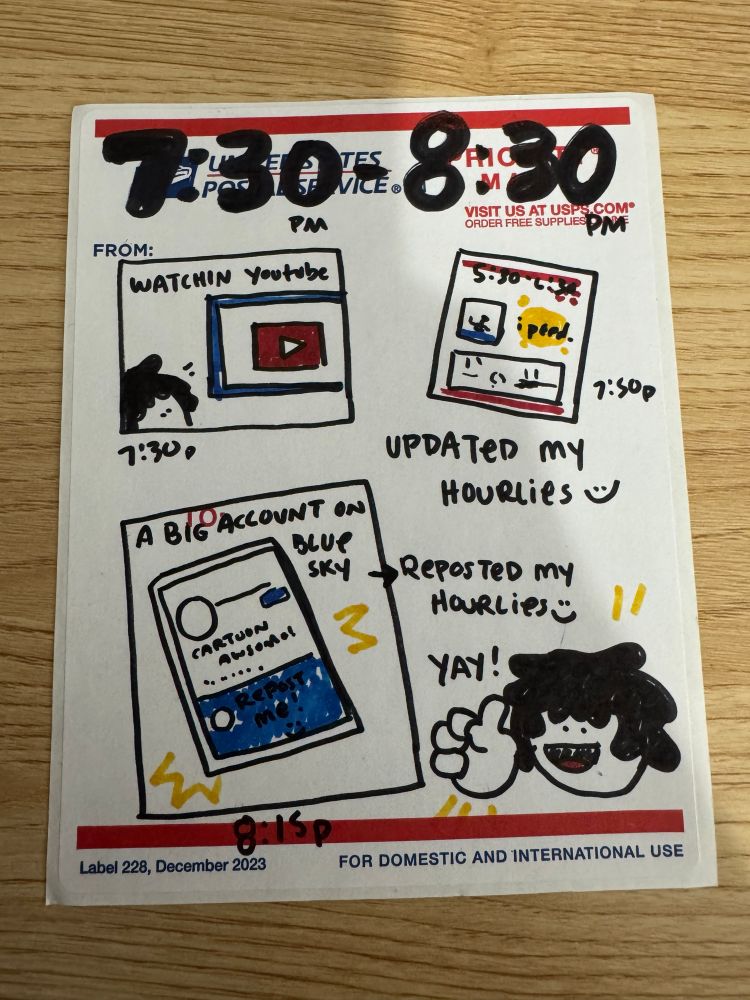 7:30-8:30
UNITED STATES
POSTAL SERVICE®
PRIORITY®
MAIL
PM
VISIT US AT USPS.COM®
ORDER FREE SUPPLIES
PM
FROM:
WATCHIN Youtube
7:30p
i peed.
7:50p
UPDATED MY
HOURLIES
TO:
A BIG ACCOUNT ON
BLUE
SKY
REPOSTED MY
HOURLIES
CARTOON
AWSOME!
REPOST
ME!
YAY!
8:15p
Label 228, December 2023
FOR DOMESTIC AND INTERNATIONAL USE